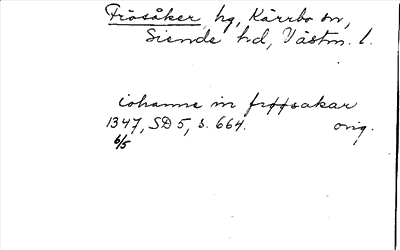 Frösåker, hg, Kärrbo sn,
Siende hd, Västm. l.
iohanne in frøsakar
1347, SD 5, s. 664. orig.
6/5